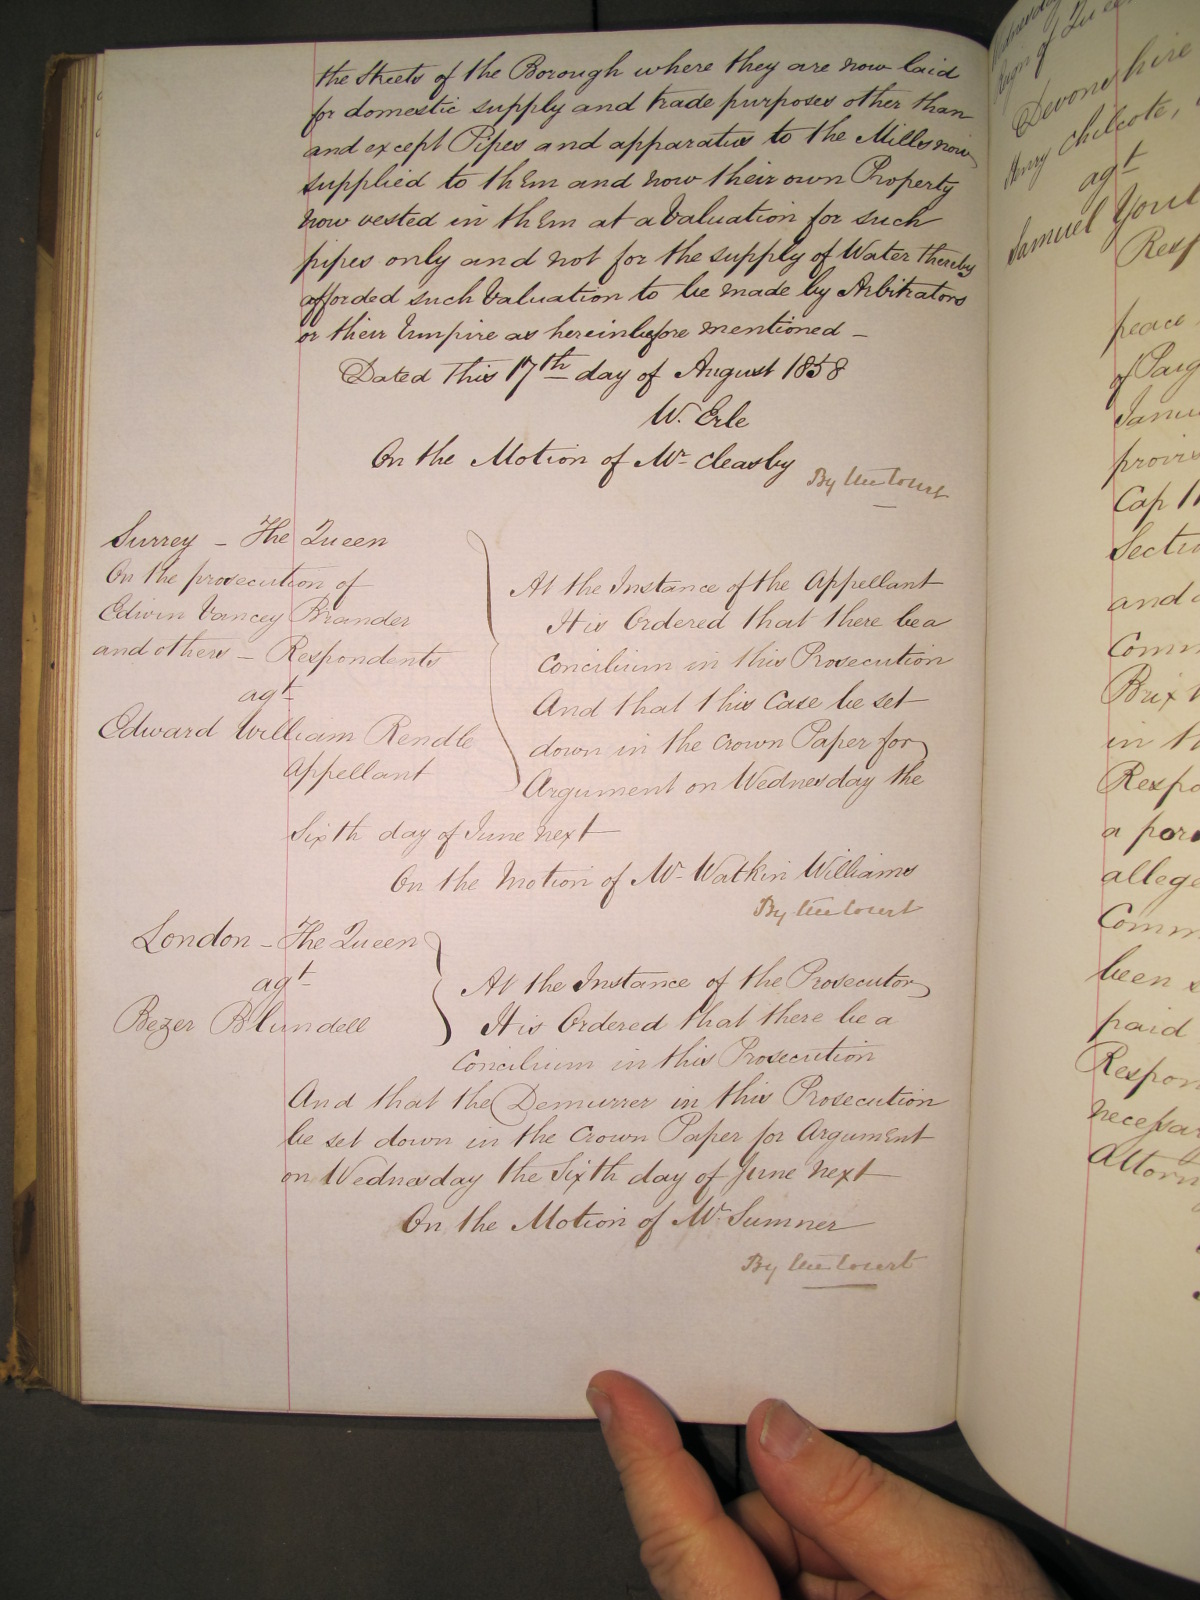 the Streets of the Borough where they are now laid
for domestic supply and trade purposes other than
and except Pipes and apparatus to the Mills now
supplied to them and now their own Property
now vested in them at a Valuation for such
pipes only and not for the supply of Water thereby
afforded such Valuation to be made by Arbitrators
or their Umpire as hereinbefore mentioned –
Dated this 17th day of August 1858
W. Erle
On the Motion of Mr Cleasby
By the Court
Surrey – The Queen
On the prosecution of
Edwin Vancey Brander
and others – Respondents
agt
Edward William Rendle
Appellant
At the Instance of the Appellant
It is Ordered that there be a
Concilium in this Prosecution
And that this Case be set
down in the Crown Paper for
Argument on Wednesday the
Sixth day of June next
On the Motion of Mr Watkin Williams
By the Court
London – The Queen
agt
Bezer Blundell
At the Instance of the Prosecutor
It is Ordered that there be a
Concilium in this Prosecution
And that the Demurrer in this Prosecution
be set down in the Crown Paper for Argument
on Wednesday the Sixth day of June next
On the Motion of Mr Sumner
By the Court
Devonshire
Henry Chilcote,
agt
Samuel
peace
of
Cap
and
in
a
allege
been
paid